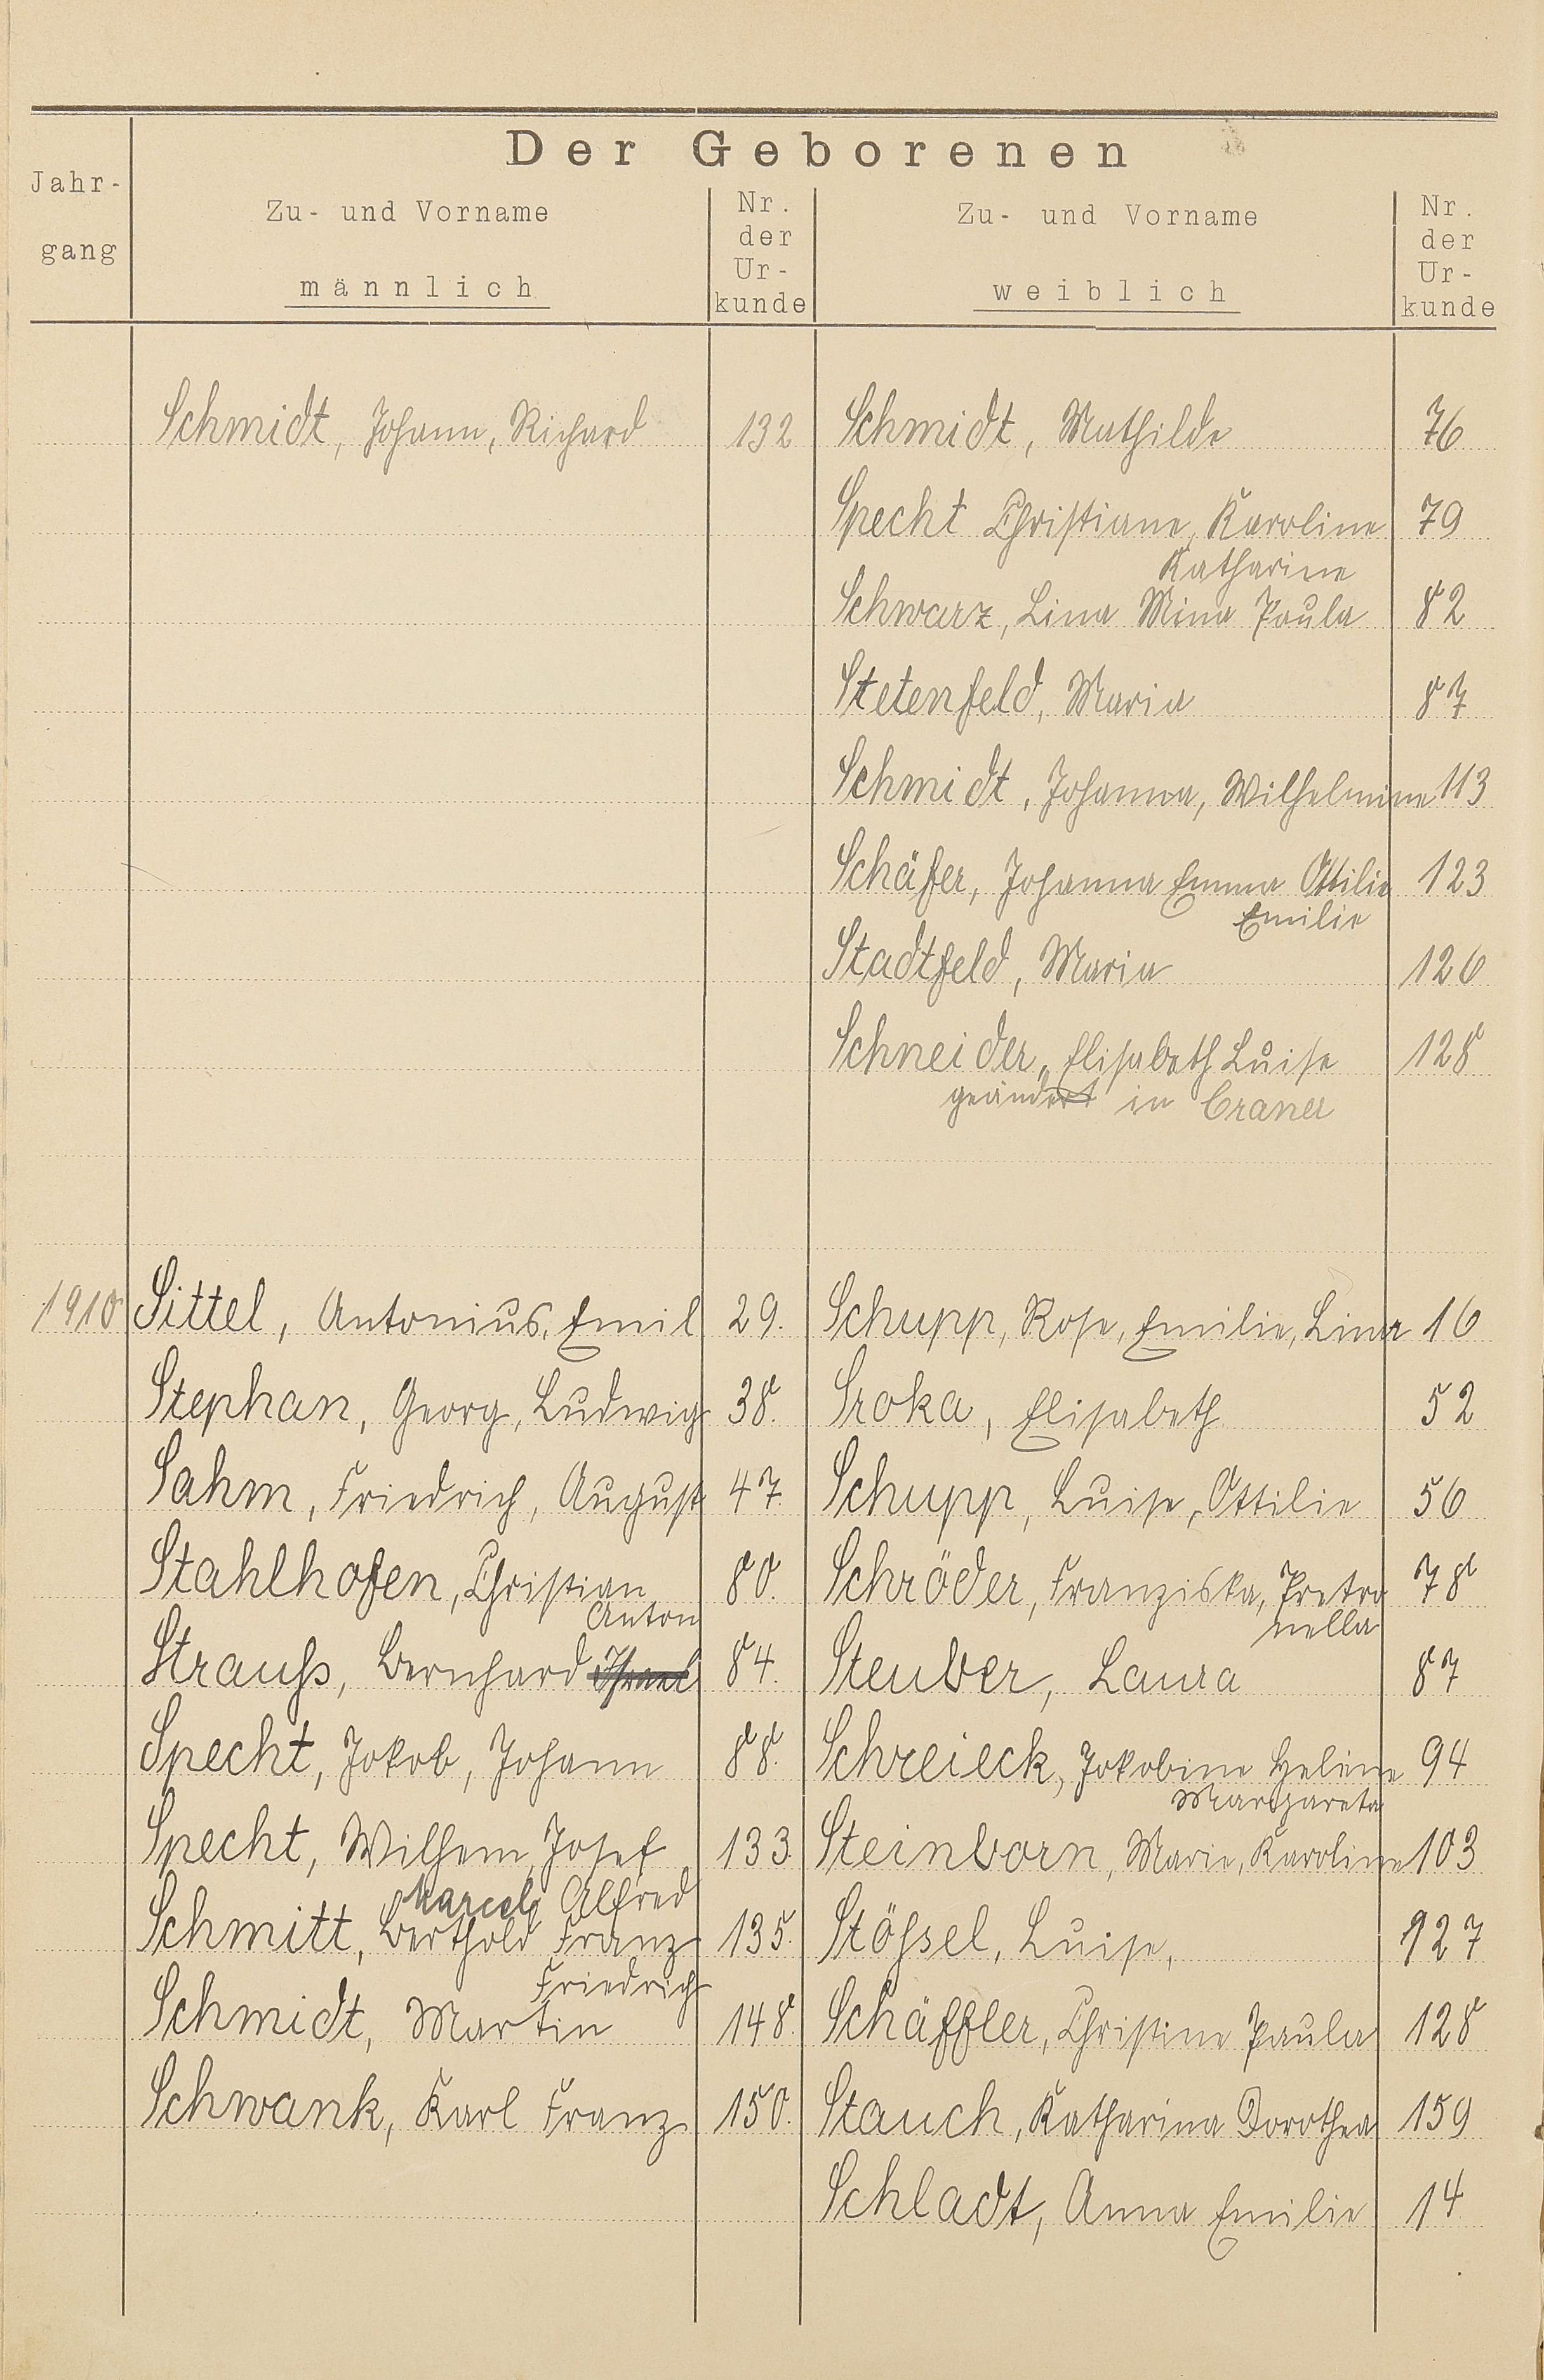 Der Geborenen
Jahr-
gang
Zu- und Vorname
männlich
Nr.
der
Ur-
kunde
Zu- und Vorname
weiblich
Nr.
der
Ur-
kunde
Schmidt, Johann, Richard 132 Schmidt, Mathilde 76
Specht Christiane, Karoline 79
Katharine
Schwarz, Lina Mina Paula 82
Stetenfeld, Maria 87
Schmidt, Johanna, Wilhelmine 113
Schäfer, Johanna Emma Ottilie 123
Emilie
Stadtfeld, Maria 126
Schneider, Elisabeth Luise 128
geändert in Craner
1910 Sittel, Antonius, Emil 29. Schupp, Rosa, Emilie, Lina 16
Stephan, Georg, Ludwig 38. Sroka, Elisabeth 52
Sahm, Friedrich, August 47. Schupp, Luise, Ottilie 56
Stahlhofen, Christian 80. Schröder, Franziska, Petro 78
Anton nella
Strauß, Bernhard Israel 84. Steuber, Laura 87
Specht, Jakob, Johann 88. Schreieck, Jakobine Helene 94
Margareta
Specht, Wilhem, Josef 133. Steinborn, Marie, Karoline 103
Marcel, Alfred
Schmitt, Berthold Franz 135. Stößel, Luise, 127
Friedrich
Schmidt, Martin 148. Schäffler, Christine Paula 128
Schwank, Karl Franz 150. Stauch, Katharina Dorothea 159
Schladt, Anna Emilie 14